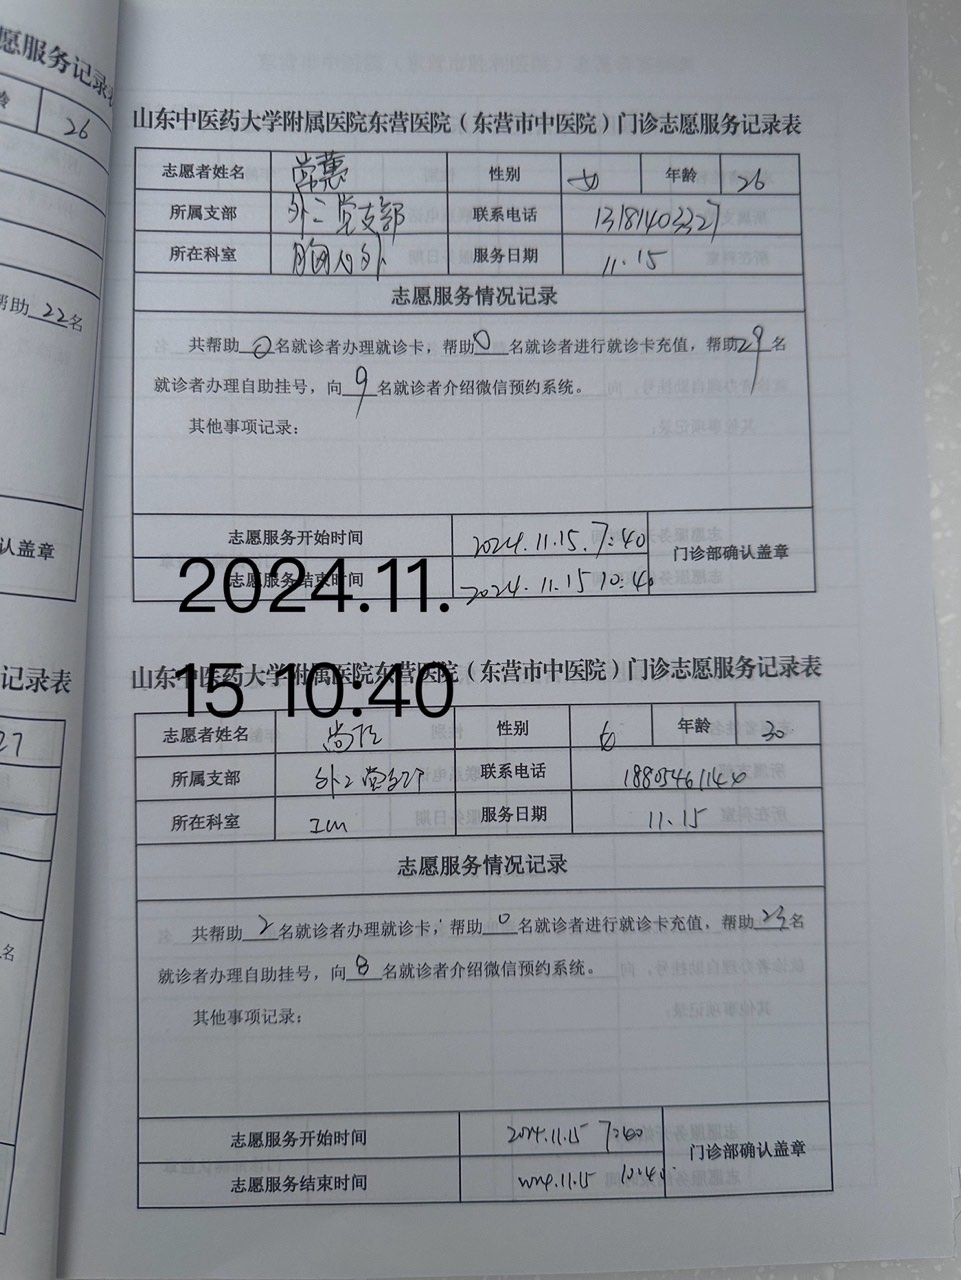 愿服务记录表
龄 26
帮助 22 名
认盖章
记录表
27
名
山东中医药大学附属医院东营医院（东营市中医院）门诊志愿服务记录表
志愿者姓名 常蕙 性别 女 年龄 26
所属支部 外二党支部 联系电话 13181403327
所在科室 胸心外 服务日期 11.15
志愿服务情况记录
共帮助 0 名就诊者办理就诊卡，帮助 0 名就诊者进行就诊卡充值，帮助 29 名
就诊者办理自助挂号，向 9 名就诊者介绍微信预约系统。
其他事项记录：
志愿服务开始时间 2024.11.15. 7:40 门诊部确认盖章
志愿服务结束时间 2024.11.15 10:40
2024.11.
15 10:40
山东中医药大学附属医院东营医院（东营市中医院）门诊志愿服务记录表
志愿者姓名 性别 女 年龄 30
所属支部 外二党支部 联系电话
所在科室 ICU 服务日期 11.15
志愿服务情况记录
共帮助 2 名就诊者办理就诊卡，帮助 0 名就诊者进行就诊卡充值，帮助 23 名
就诊者办理自助挂号，向 8 名就诊者介绍微信预约系统。
其他事项记录：
志愿服务开始时间 2024.11.15 7:40 门诊部确认盖章
志愿服务结束时间 2024.11.15 10:40